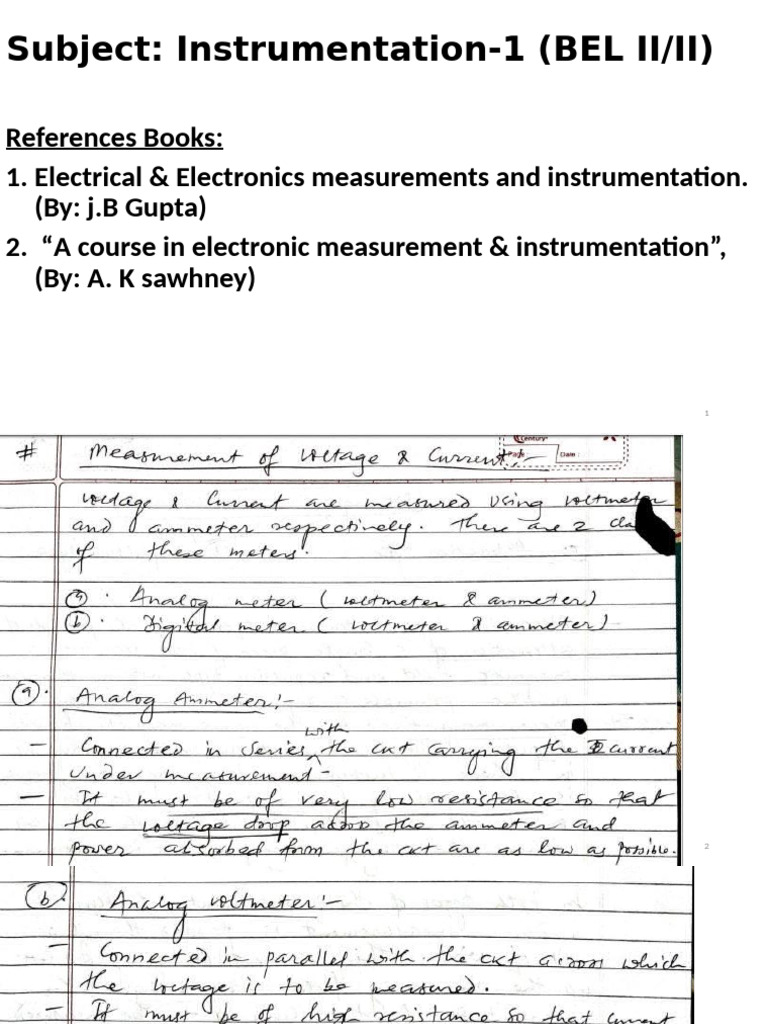 Subject: Instrumentation-1 (BEL II/II)
References Books:
1. Electrical & Electronics measurements and instrumentation.
(By: j.B Gupta)
2. “A course in electronic measurement & instrumentation”,
(By: A. K sawhney)
1
Century
Page Date
# Measurement of voltage & Current:-
voltage & Current are measured using voltmeter
and ammeter respectively. There are 2 cla
of these meters.
(a). Analog meter (voltmeter & ammeter)
(b). Digital meter. (voltmeter & ammeter)
(a). Analog Ammeter:-
with
- Connected in series the ckt carrying the I current
under measurement-
- It must be of very low resistance so that
the voltage drop across the ammeter and
power absorbed from the ckt are as low as possible.
2
(b). Analog voltmeter:-
- Connected in parallel with the ckt across which
the voltage is to be measured.
- It must be of high resistance so that current